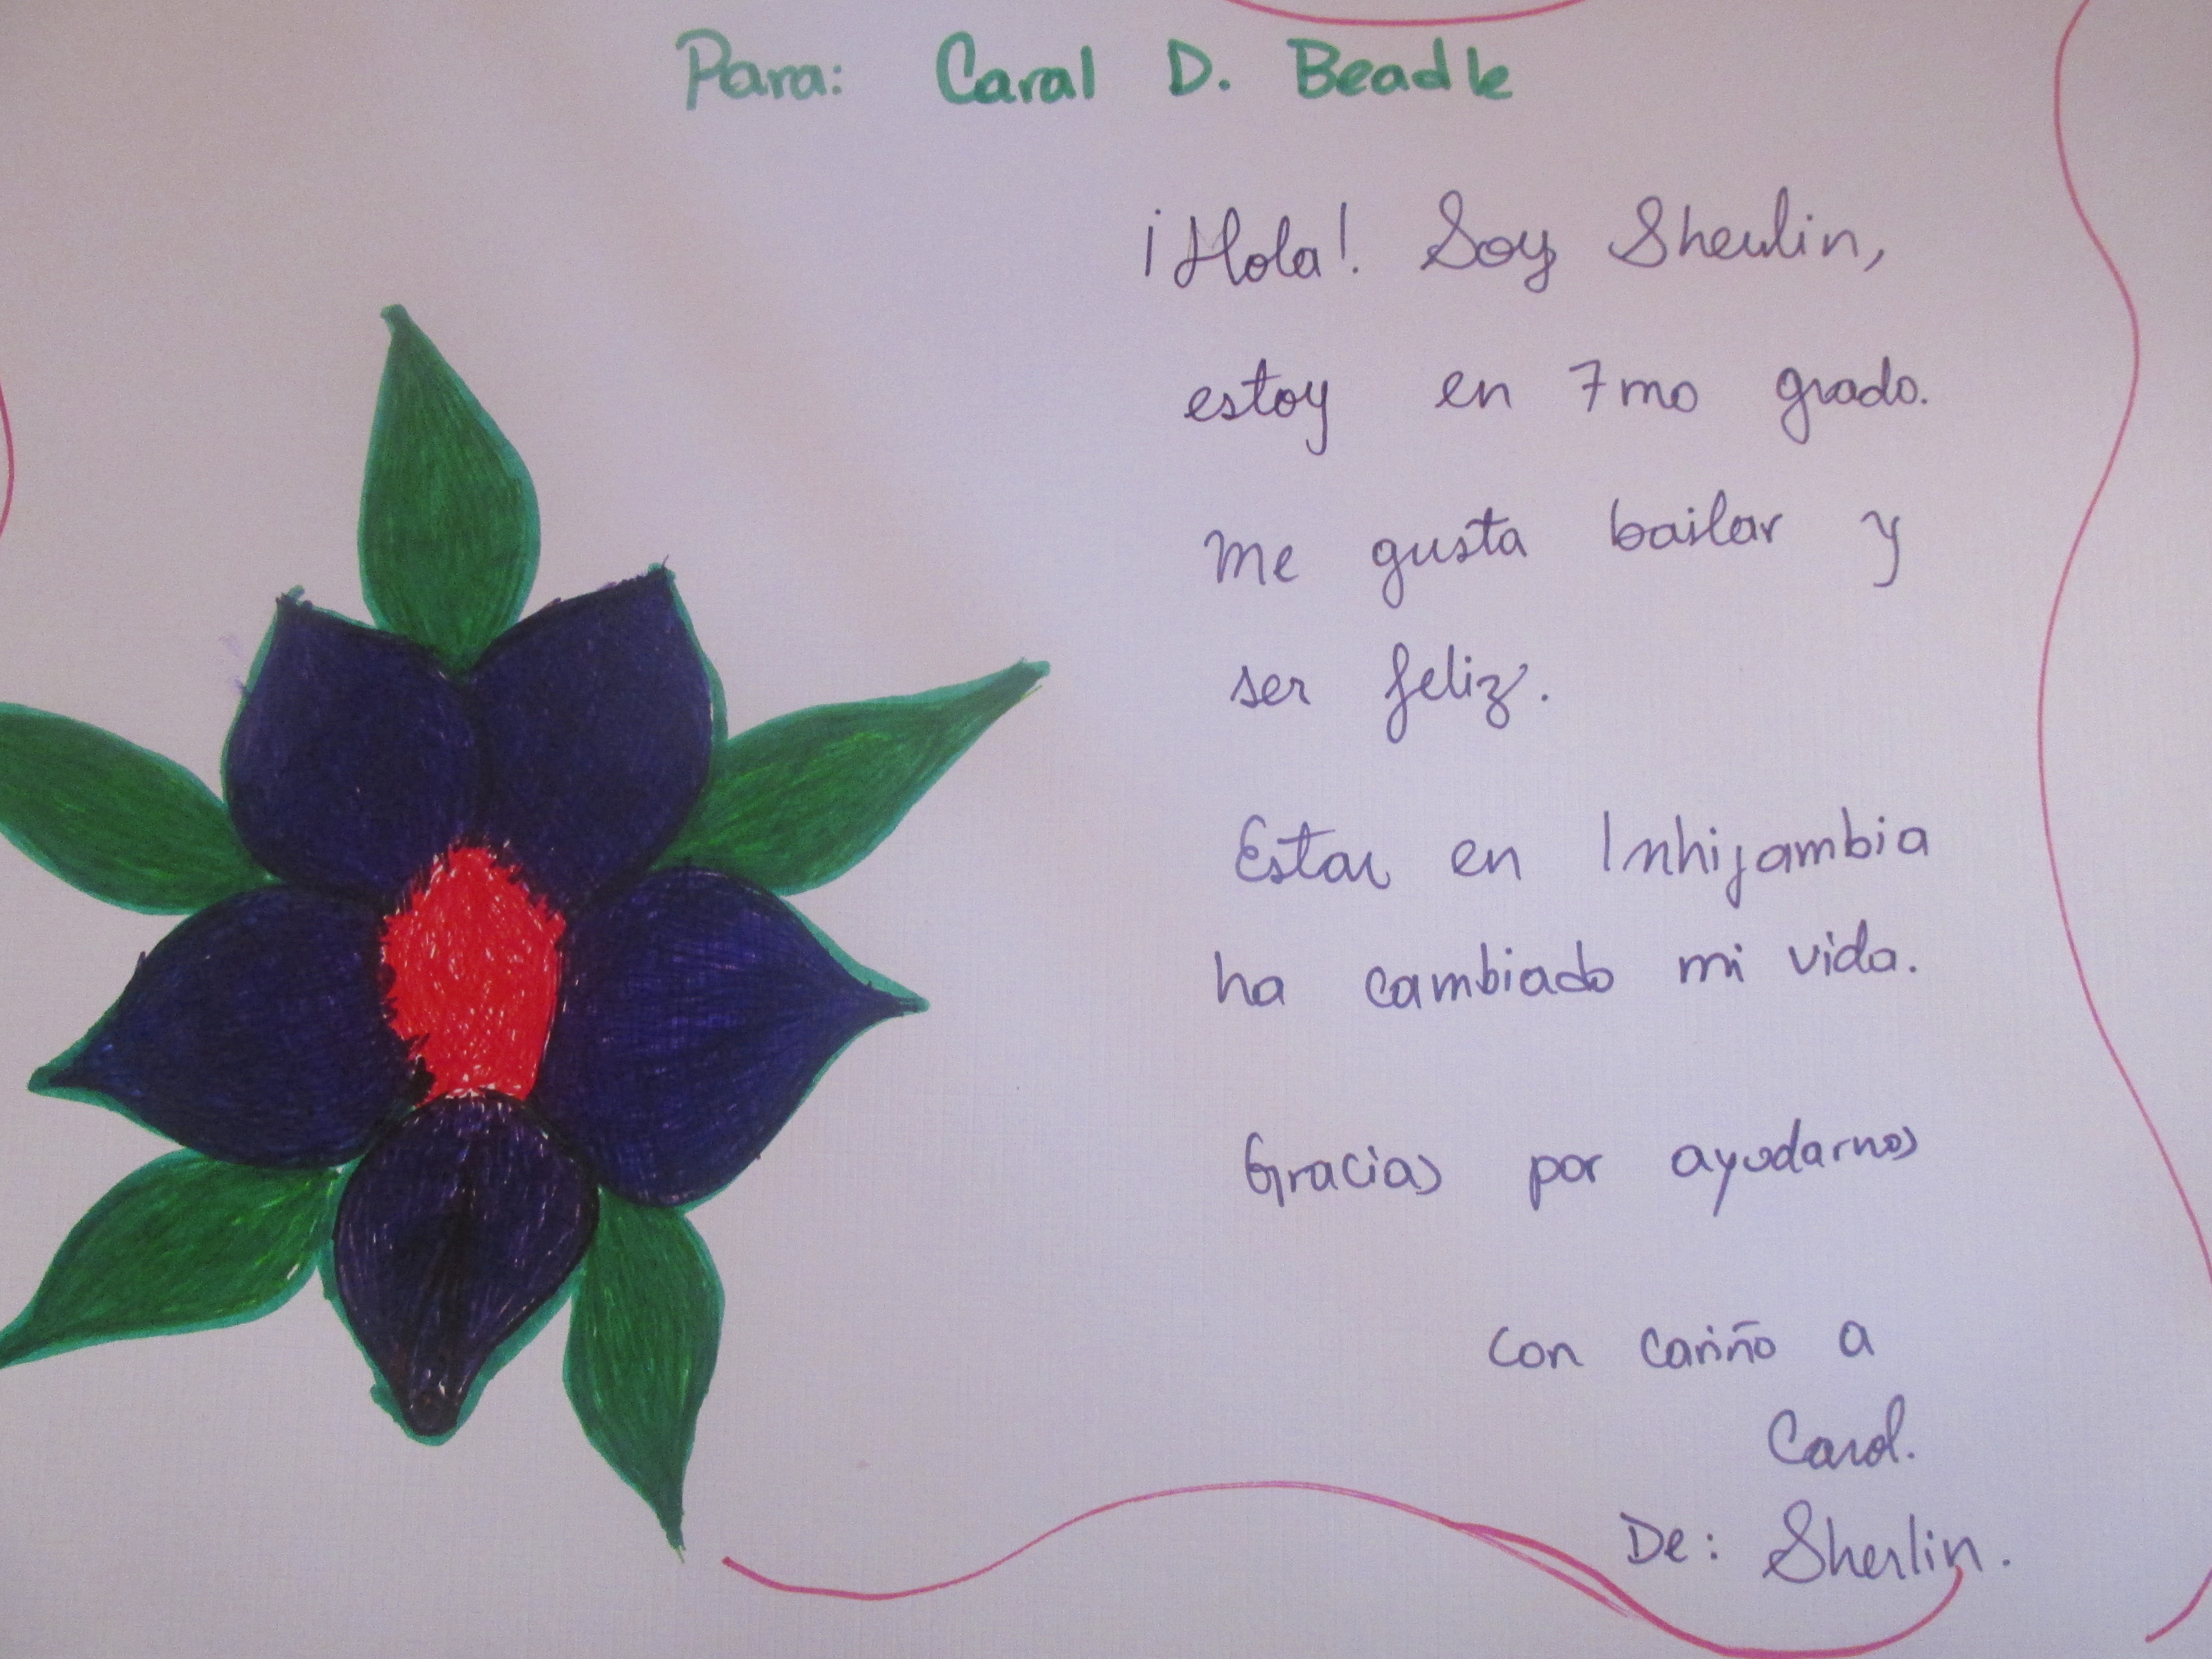 Para: Caral D. Beadle
¡Hola! Soy Sherlin,
estoy en 7mo grado.
Me gusta bailar y
ser feliz.
Estar en Inhijambia
ha cambiado mi vida.
Gracias por ayudarnos
con cariño a
Carol.
De: Sherlin.